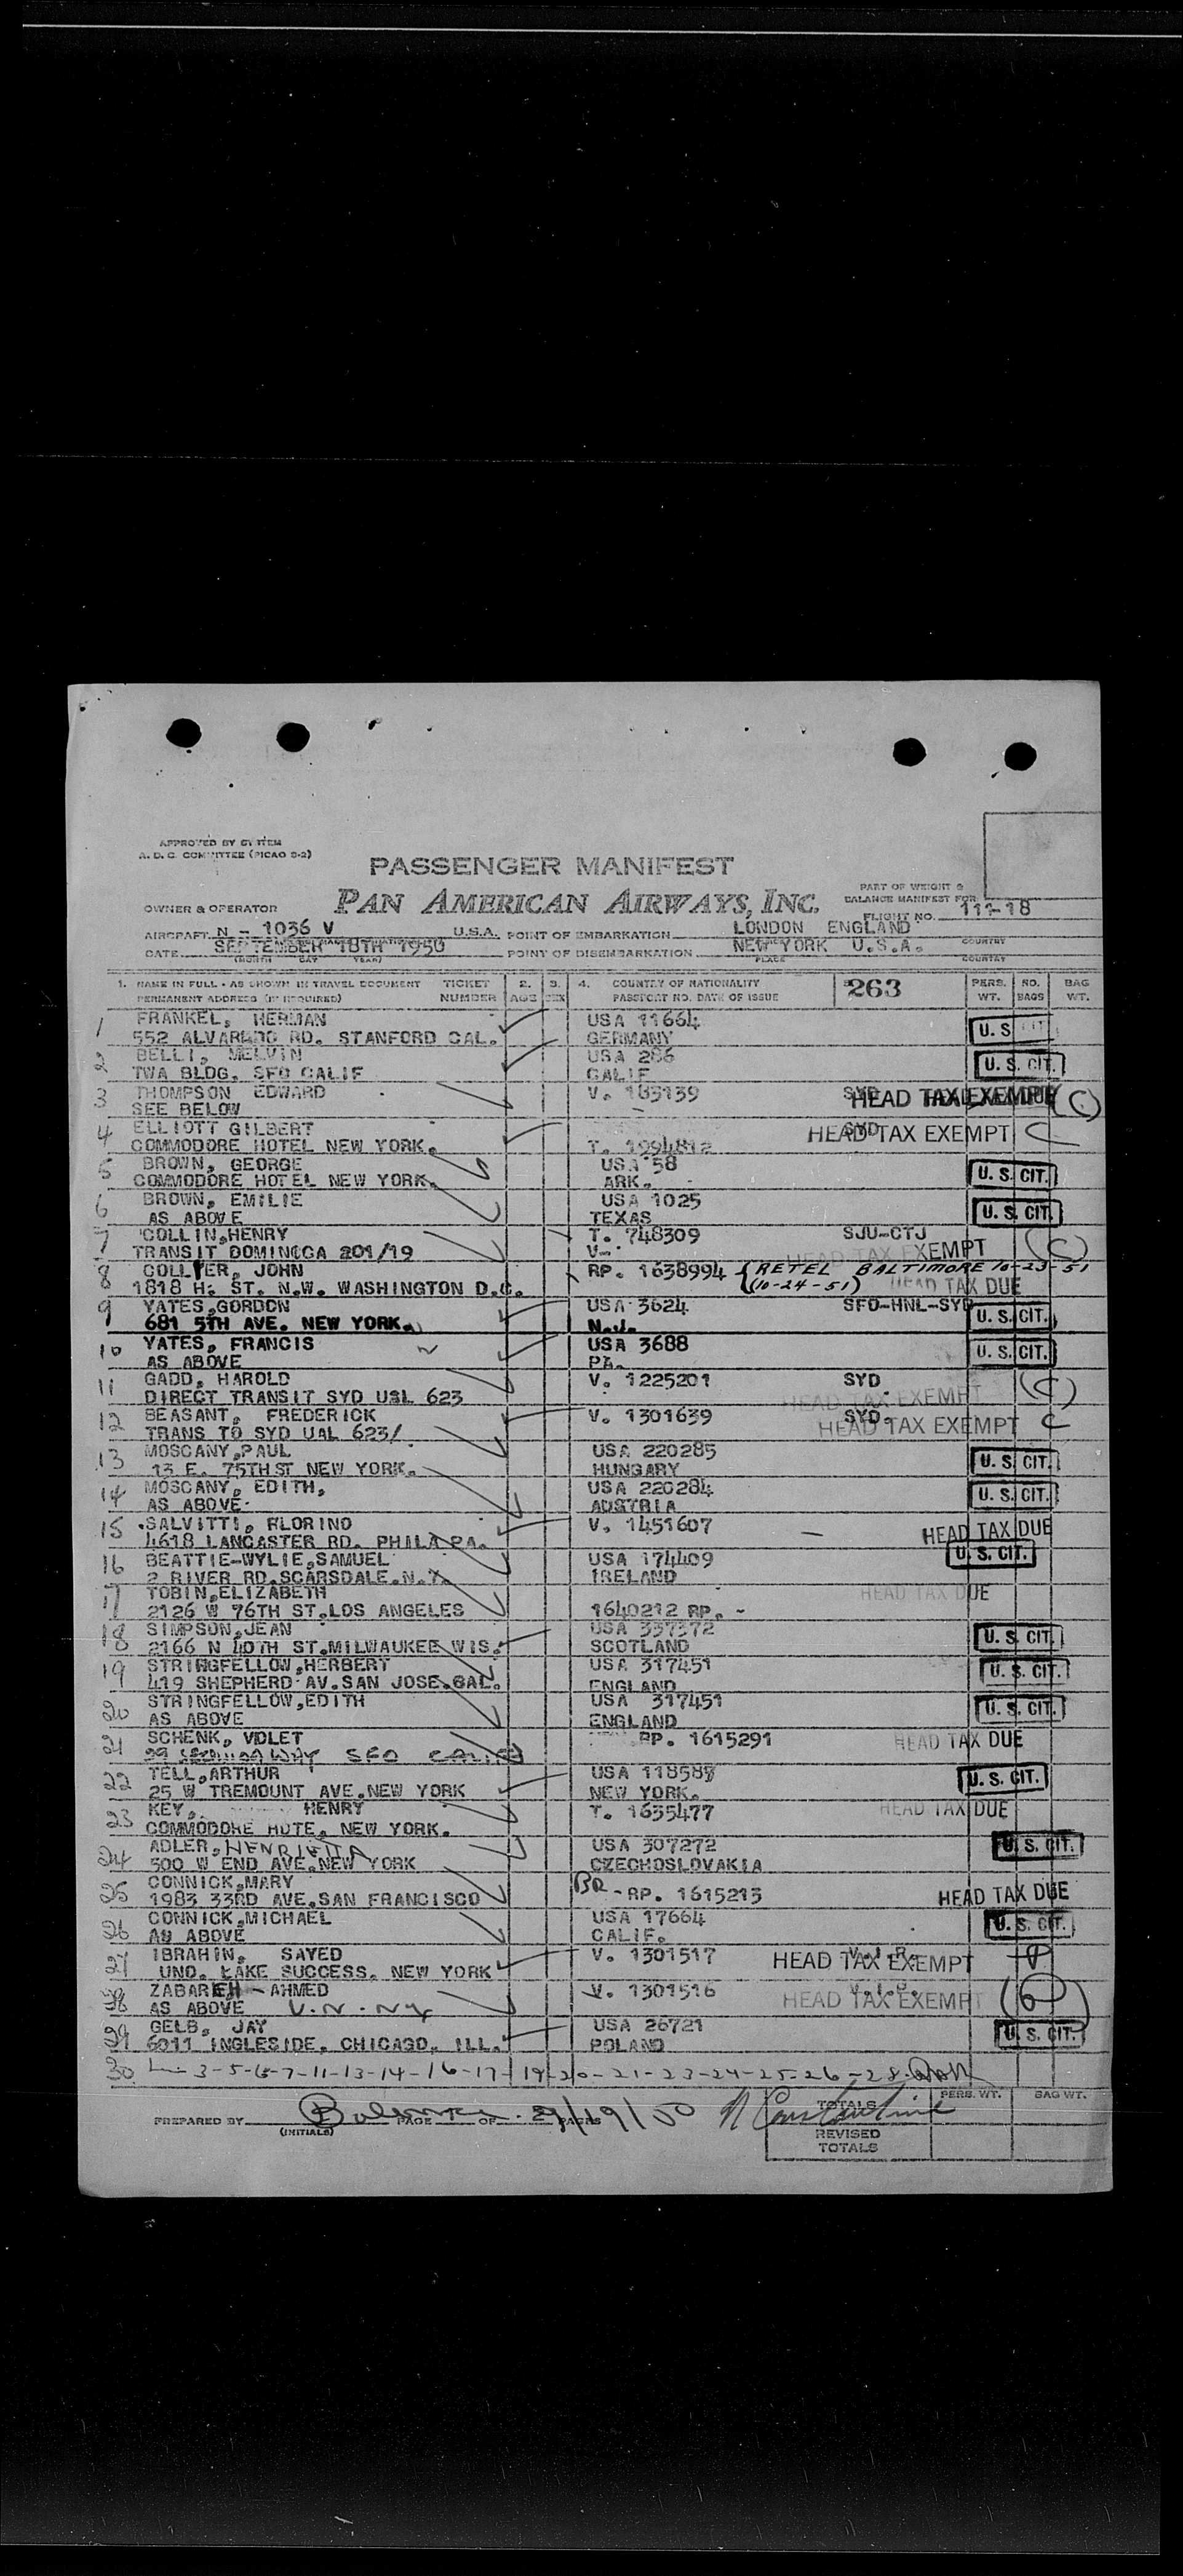 APPROVED BY SYSTEM
A. D. C. COMMITTEE (PICAO S-2)
PASSENGER MANIFEST
PAN AMERICAN AIRWAYS, INC.
PART OF WEIGHT &
BALANCE MANIFEST FOR
OWNER & OPERATOR
FLIGHT NO. 111-18
AIRCRAFT N - 1036 V U.S.A. POINT OF EMBARKATION LONDON ENGLAND
DATE SEPTEMBER 18TH 1950 POINT OF DISEMBARKATION NEW YORK U.S.A.
(MONTH DAY YEAR) PLACE COUNTRY
COUNTRY
1. NAME IN FULL - AS SHOWN IN TRAVEL DOCUMENT TICKET 2. 3. 4. COUNTRY OF NATIONALITY 263 PERS. NO. BAG
PERMANENT ADDRESS (IF REQUIRED) NUMBER AGE SEX PASSPORT NO. DATE OF ISSUE WT. BAGS WT.
1 FRANKEL, HERMAN USA 11664 U. S. CIT.
552 ALVARADO RD. STANFORD CAL. GERMANY
2 BELLI, MELVIN USA 286 U. S. CIT.
TWA BLDG. SFO CALIF CALIF
3 THOMPSON EDWARD V. 183139 SYD HEAD TAX EXEMPT (C)
SEE BELOW
4 ELLIOTT GILBERT SYD HEAD TAX EXEMPT C
COMMODORE HOTEL NEW YORK. T. 1994812
5 BROWN, GEORGE USA 58 U. S. CIT.
COMMODORE HOTEL NEW YORK. ARK.
6 BROWN, EMILIE USA 1025 U. S. CIT.
AS ABOVE TEXAS
7 COLLIN,HENRY T. 748309 SJU-CTJ
TRANSIT DOMINICA 201/19 V-. HEAD TAX EXEMPT (C)
8 COLLYER, JOHN RP. 1638994 { RETEL BALTIMORE 10-23-51
1818 H. ST. N.W. WASHINGTON D.C. (10-24-51) HEAD TAX DUE
9 YATES,GORDON USA 3624 SFO-HNL-SYD U. S. CIT.
681 5TH AVE. NEW YORK. N.J.
10 YATES, FRANCIS USA 3688 U. S. CIT.
AS ABOVE PA.
11 GADD, HAROLD V. 1225201 SYD (C)
DIRECT TRANSIT SYD UAL 623 HEAD TAX EXEMPT
12 BEASANT, FREDERICK V. 1301639 SYD. HEAD TAX EXEMPT C
TRANS TO SYD UAL 623/
13 MOSCANY,PAUL USA 220285 U. S. CIT.
13 E. 75TH ST NEW YORK. HUNGARY
14 MOSCANY, EDITH, USA 220284 U. S. CIT.
AS ABOVE. AUSTRIA
15 SALVITTI, FLORINO V. 1451607 — HEAD TAX DUE
4618 LANCASTER RD. PHILA PA.
16 BEATTIE-WYLIE,SAMUEL USA 174409 U. S. CIT.
2 RIVER RD.SCARSDALE.N.Y. IRELAND
17 TOBIN,ELIZABETH HEAD TAX DUE
2126 W 76TH ST.LOS ANGELES 1640212 RP. -
18 SIMPSON,JEAN USA 337372 U. S. CIT.
2166 N 40TH ST.MILWAUKEE WIS. SCOTLAND
19 STRINGFELLOW,HERBERT USA 317451 U. S. CIT.
419 SHEPHERD AV.SAN JOSE.CAL. ENGLAND
20 STRINGFELLOW,EDITH USA 317451 U. S. CIT.
AS ABOVE ENGLAND
21 SCHENK, VOLET RP. 1615291 HEAD TAX DUE
SFO CALIF
22 TELL,ARTHUR USA 118589 U. S. CIT.
25 W TREMOUNT AVE.NEW YORK NEW YORK.
23 KEY, HENRY T. 1635477 HEAD TAX DUE
COMMODORE HOTE. NEW YORK.
24 ADLER, HENRIETTA USA 307272 U. S. CIT.
500 W END AVE.NEW YORK CZECHOSLOVAKIA
25 CONNICK,MARY BR-RP. 1615213 HEAD TAX DUE
1983 33RD AVE.SAN FRANCISCO
26 CONNICK,MICHAEL USA 17664 U. S. CIT.
AS ABOVE CALIF.
27 IBRAHIN, SAYED V. 1301517 HEAD TAX EXEMPT
UNO. LAKE SUCCESS. NEW YORK
28 ZABAREH - AHMED V. 1301516 HEAD TAX EXEMPT
AS ABOVE U.N. NY
29 GELB, JAY USA 26721 U. S. CIT.
6011 INGLESIDE. CHICAGO. ILL. POLAND
30 3-5-6-7-11-13-14-16-17-19-20-21-23-24-25-26-28
PERS. WT. BAG WT.
TOTALS
PREPARED BY PAGE OF PAGES 9/19/50
(INITIALS)
REVISED
TOTALS